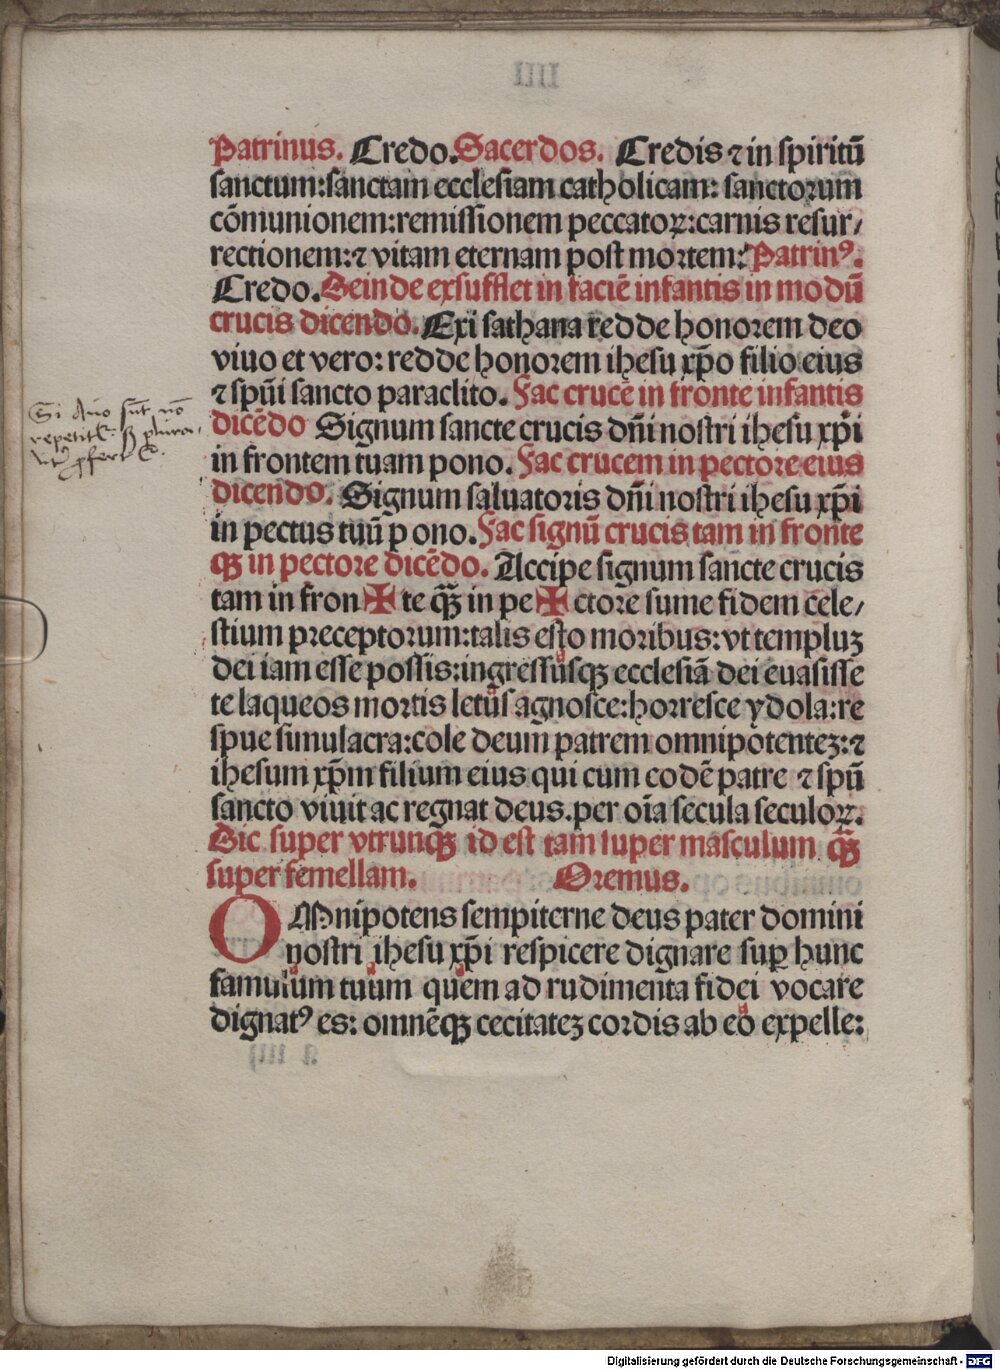 Patrinus. Credo. Sacerdos. Credis ⁊ in spiritū
sanctum: sanctam ecclesiam catholicam: sanctorum
cōmunionem: remissionem peccatoꝝ: carnis resur/
rectionem: ⁊ vitam eternam post mortem: Patrinꝰ.
Credo. Deinde exsufflet in faciē infantis in modū
crucis dicendo. Exi sathana redde honorem deo
viuo et vero: redde honorem ihesu xp̄o filio eius
⁊ spūi sancto paraclito. Fac crucē in fronte infantis
dicēdo Signum sancte crucis dn̄i nostri ihesu xp̄i
in frontem tuam pono. Fac crucem in pectore eius
dicendo. Signum saluatoris dn̄i nostri ihesu xp̄i
in pectus tuū pono. Fac signū crucis tam in fronte
qꝫ in pectore dicēdo. Accipe signum sancte crucis
tam in fron ✠ te qꝫ̄ in pe ✠ ctore sume fidem cele/
stium preceptorum: talis esto moribus: vt templuꝫ
dei iam esse possis: ingressusqꝫ ecclesiā dei euasisse
te laqueos mortis letus agnosce: horresce ydola: re
spue simulacra: cole deum patrem omnipotenteꝫ: ⁊
ihesum xp̄m filium eius qui cum eodē patre ⁊ spū
sancto viuit ac regnat deus. per oīa secula seculoꝝ.
Dic super vtrunqꝫ id est tam super masculum qꝫ̄
super femellam. Oremus.
OMnipotens sempiterne deus pater domini
nostri ihesu xp̄i respicere dignare suꝑ hunc
famulum tuum quem ad rudimenta fidei vocare
dignatꝰ es: omnēqꝫ cecitateꝫ cordis ab eo expelle:
Digitalisierung gefördert durch die Deutsche Forschungsgemeinschaft - DFG